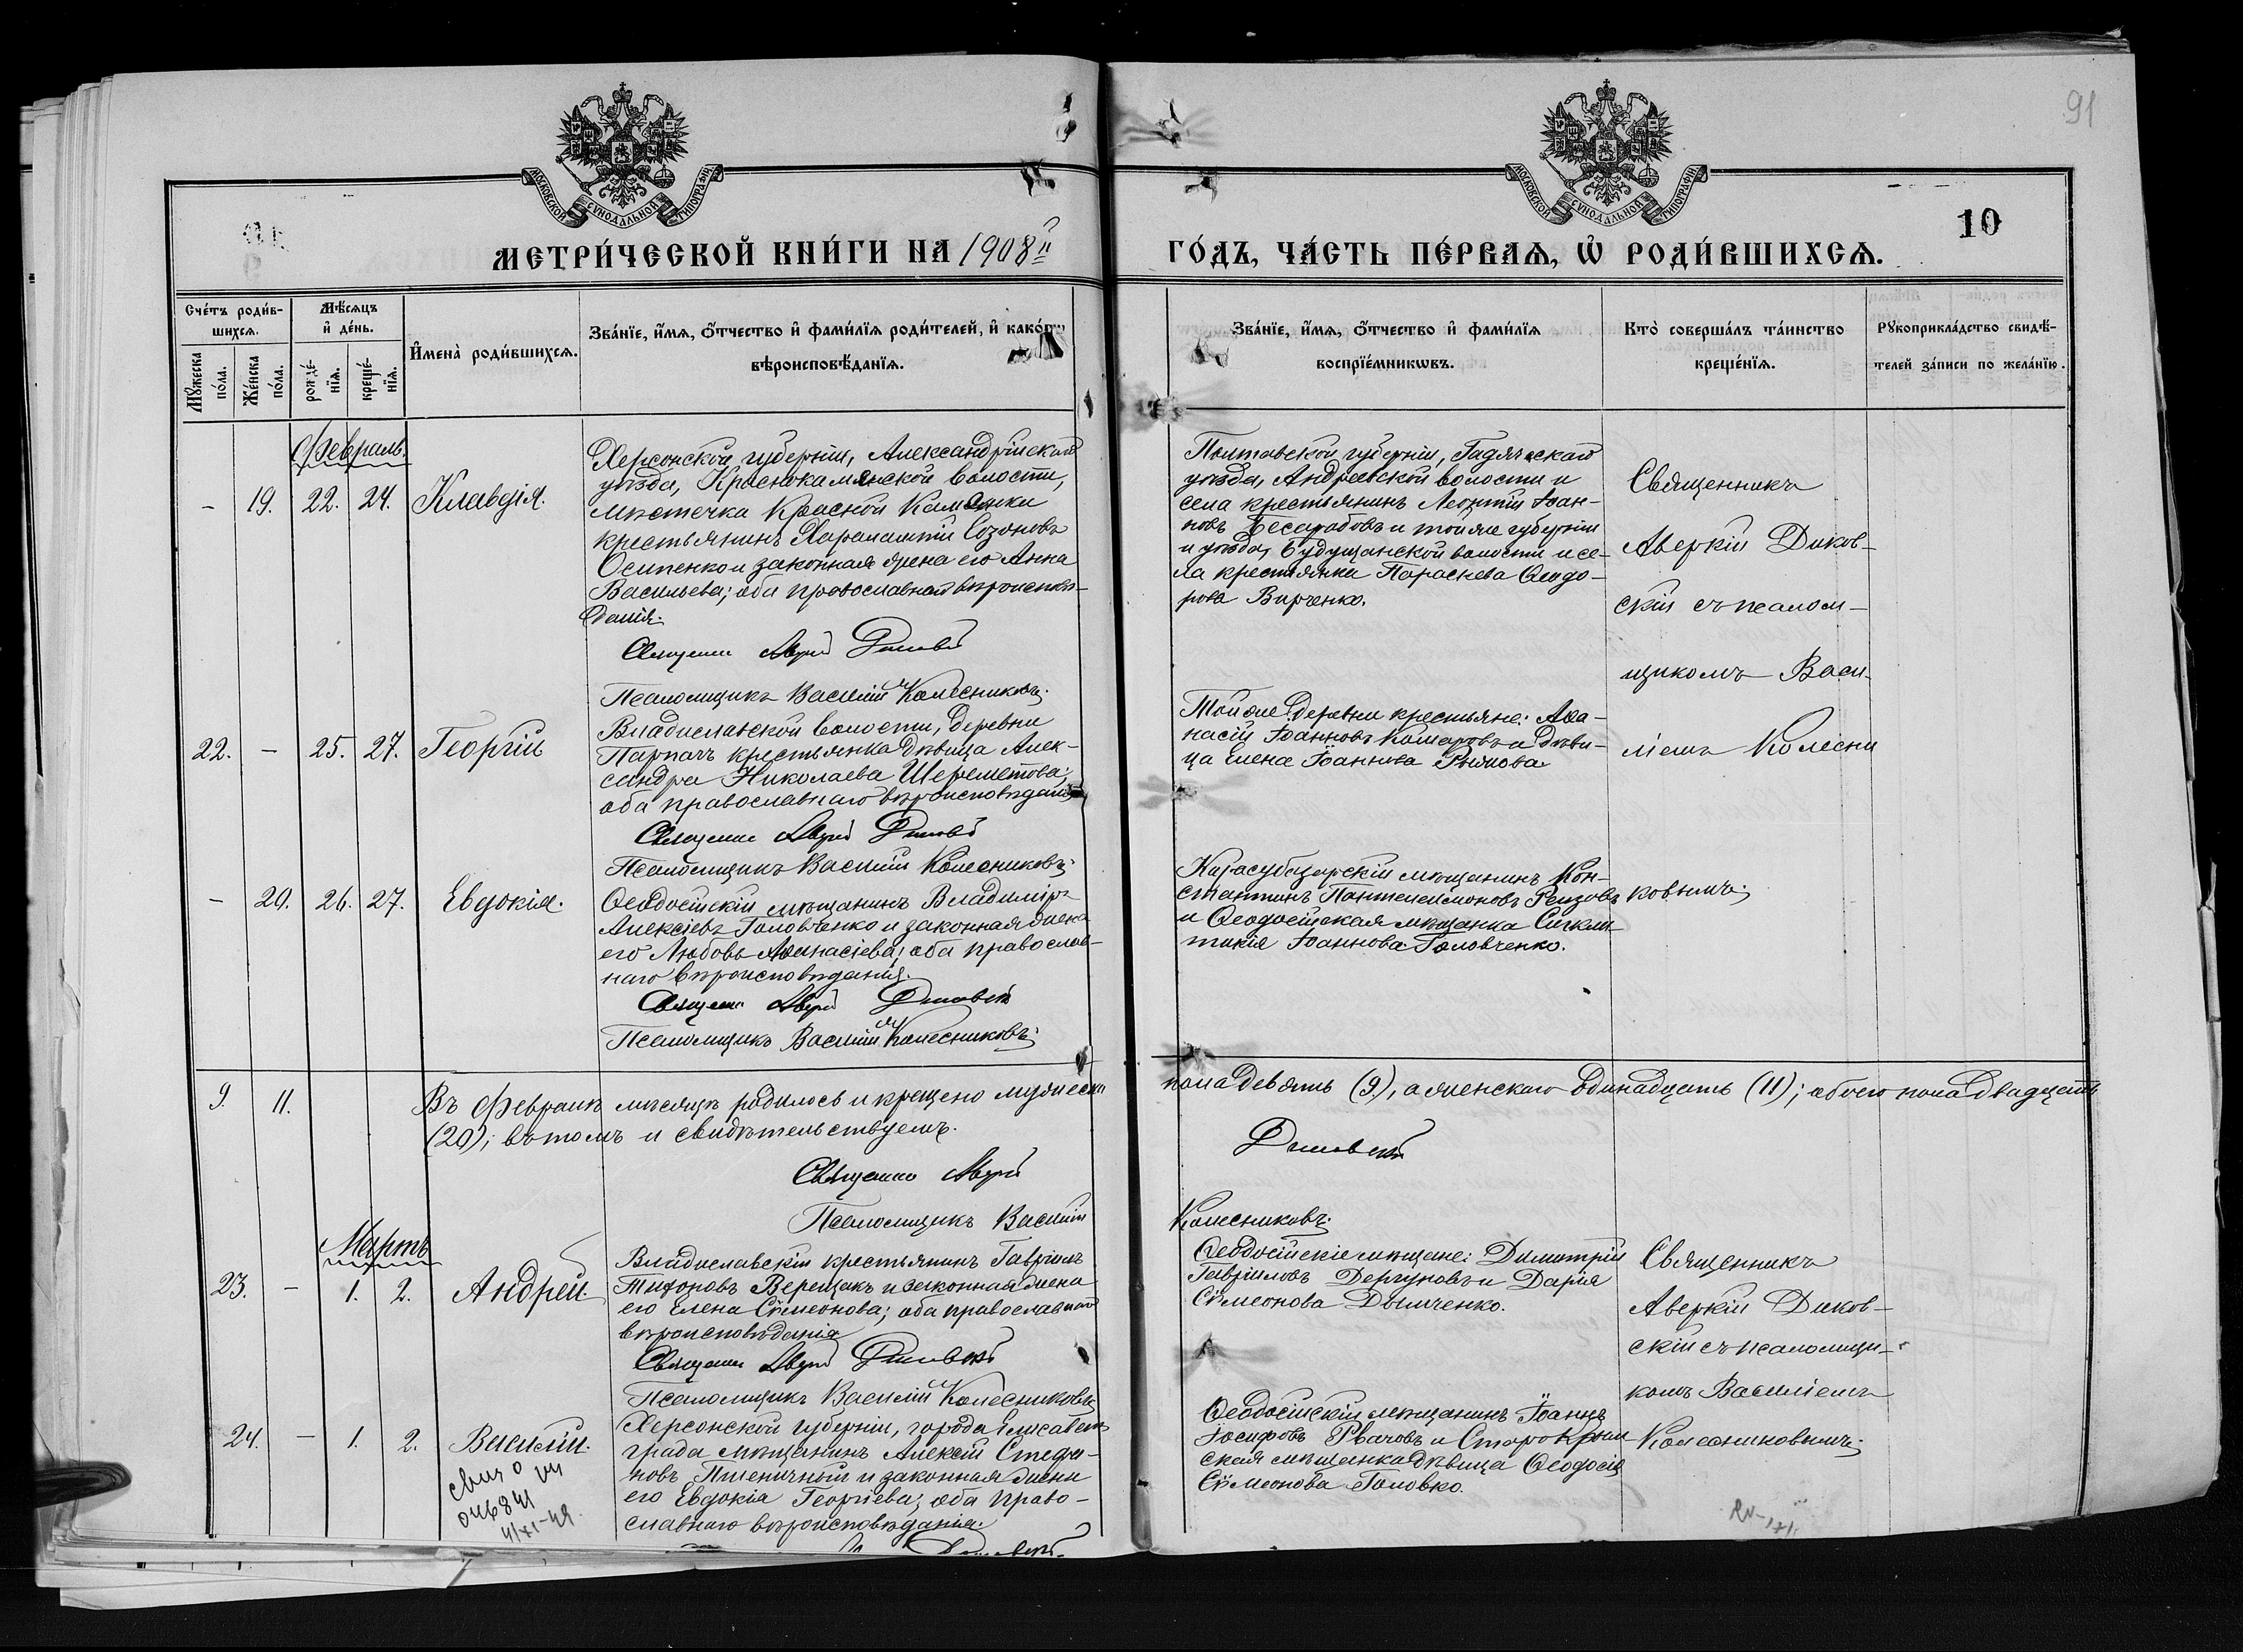 91
10
МОСКОВСКОЙ СѴНОДАЛЬНОЙ ТИПОГРАФІИ
МОСКОВСКОЙ СѴНОДАЛЬНОЙ ТИПОГРАФІИ
МЕТРИ́ЧЕСКОЙ КНИ́ГИ НА 1908й ГО́ДЪ, ЧА́СТЬ ПЕ́РВАѦ, Ѡ҆ РОДИ́ВШИХСѦ.
Сче́тъ роди́вшихсѧ.
Мꙋ́жеска по́ла.
Же́нска по́ла.
Мѣ́сѧцъ и҆ де́нь.
рожде́нїѧ.
креще́нїѧ.
И҆мена̀ роди́вшихсѧ.
Зва́нїе, и҆́мѧ, ѻ҆́тчество и҆ фами́лїѧ роди́телей, и҆ како́гѡ
вѣроисповѣ́данїѧ.
Зва́нїе, и҆́мѧ, ѻ҆́тчество и҆ фами́лїѧ
воспрїе́мникѡвъ.
Кто̀ соверша́лъ та́инство
креще́нїѧ.
Рꙋкоприкла́дство свидѣ́телей за́писи по жела́нїю.
Февраль.
- 19. 22. 24. Клавдія.
Херсонской губерніи, Александрійскаго
уѣзда, Краснокамянской волости,
мѣстечка Красной Камянки
крестьянинъ Харалампій Созоновъ
Осипенко и законная жена его Анна
Васильева; оба православнаго вѣроисповѣ-
данія.
Священникъ Аверкій Диковскій
Псаломщикъ Василій Колесниковъ.
Полтавской губерніи, Гадячскаго
уѣзда, Андреевской волости и
села крестьянинъ Леонтій Іоан-
новъ Бесарабовъ и той же губерніи
и уѣзда, Будущанской волости и се-
ла крестьянка Параскева Ѳеодо-
рова Вирченко.
Священникъ
Аверкій Диков-
скій съ псалом-
щикомъ Васи-
ліемъ Колесни
ковымъ.
22. - 25. 27. Георгій
Владиславской волости, деревни
Парпачъ крестьянка дѣвица Алек-
сандра Николаева Шереметова;
оба православнаго вѣроисповѣданія
Священникъ Аверкій Диковскій
Псаломщикъ Василій Колесниковъ.
Той же деревни крестьяне: Аѳа-
насій Іоанновъ Комаровъ и дѣви-
ца Елена Іоаннова
- 20. 26. 27. Евдокія.
Ѳеодосійскій мѣщанинъ Владиміръ
Алексіевъ Головченко и законная жена
его Любовь Аѳанасіева; оба православ-
наго вѣроисповѣданія.
Священникъ Аверкій Диковскій
Псаломщикъ Василій Колесниковъ.
Карасубазарскій мѣщанинъ Кон-
стантинъ Пантелеимоновъ
и Ѳеодосійская мѣщанка Синкли-
тикія Іоаннова Головченко.
9. 11. Въ Февралѣ мѣсяцѣ родилось и крещено мужеска пола девять (9), а женскаго одинадцать (11); обоего пола двадцать
(20); въ томъ и свидѣтельствуемъ.
Священникъ Аверкій Диковскій
Псаломщикъ Василій Колесниковъ.
Мартъ
23. - 1. 2. Андрей.
Владиславскій крестьянинъ Гавріилъ
Тихоновъ Верещакъ и законная жена
его Елена Сѵмеонова; оба православнаго
вѣроисповѣданія
Священникъ Аверкій Диковскій
Псаломщикъ Василій Колесниковъ
Ѳеодосійскіе мѣщане: Димитрій
Гавріиловъ Дергуновъ и Дарія
Сѵмеонова Дымченко.
Священникъ
Аверкій Диков-
скій съ псаломщи-
комъ Василіемъ
Колесниковымъ.
24. - 1. 2. Василій.
Херсонской губерніи, города Елисавет-
града мѣщанинъ Алексій Стефа-
новъ Пшеничный и законная жена
его Евдокія Георгіева; оба право-
славнаго вѣроисповѣданія.
Ѳеодосійскій мѣщанинъ Іоаннъ
Іосифовъ Рвачовъ и Старокрым
ская мѣщанка дѣвица Ѳеодосія
Сѵмеонова Головко.